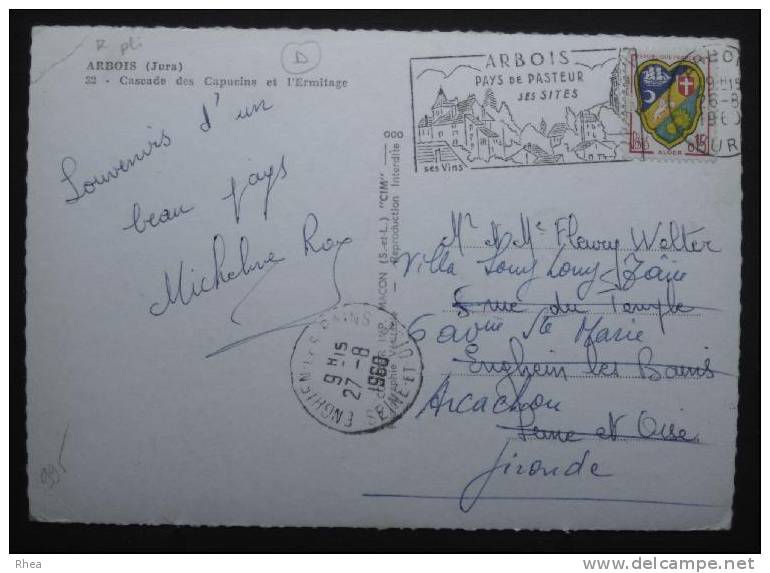 R pli
D
ARBOIS (Jura)
22 - Cascade des Capucins et l'Ermitage
ARBOIS
PAYS DE PASTEUR
SES SITES
ses Vins
15F
ALGER
1960
JURA
Souvenirs d'un
beau pays
Micheline Roy
MACON (S.-et-L.) "CIM"
Reproduction Interdite
Mr & Me Fleury Welter
Villa
5 rue du Temple
6 avue Ste Marie
Enghein les Bains
Arcachon
Seine et Oise
Gironde
ENGHIEN LES BAINS
9 H 15
27 -8
1960
SEINE ET OISE
995
Rhea
delcampe.net